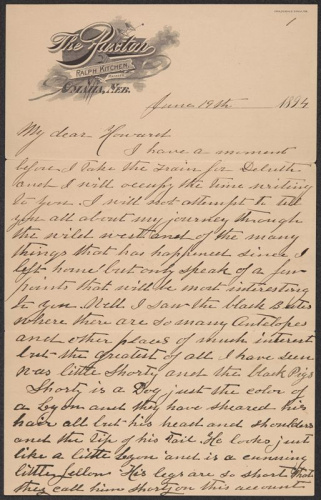 1
The Paxton
RALPH KITCHEN,
OMAHA, NEB.
June 19th 1894
My dear Howard
I have a moment
before I take the train for Deluth
and I will occupy the time writing
to you. I will not attempt to tell
you all about my journey through
the wild west and of the many
things that has happened since I
left home but only speak of a few
points that will be most interesting
to you. Well I saw the black
where there are so many Antelopes
and other places of much interest
but the greatest of all I have seen
was little Shorty and the black Pigs
Shorty is a Dog just the color of
a Lyon and they have sheared his
hair all but his head and shoulders
and the tip of his tail. He looks just
like a little Lyon and is a cunning
little fellow His legs are so short that
they call him Shorty on this account